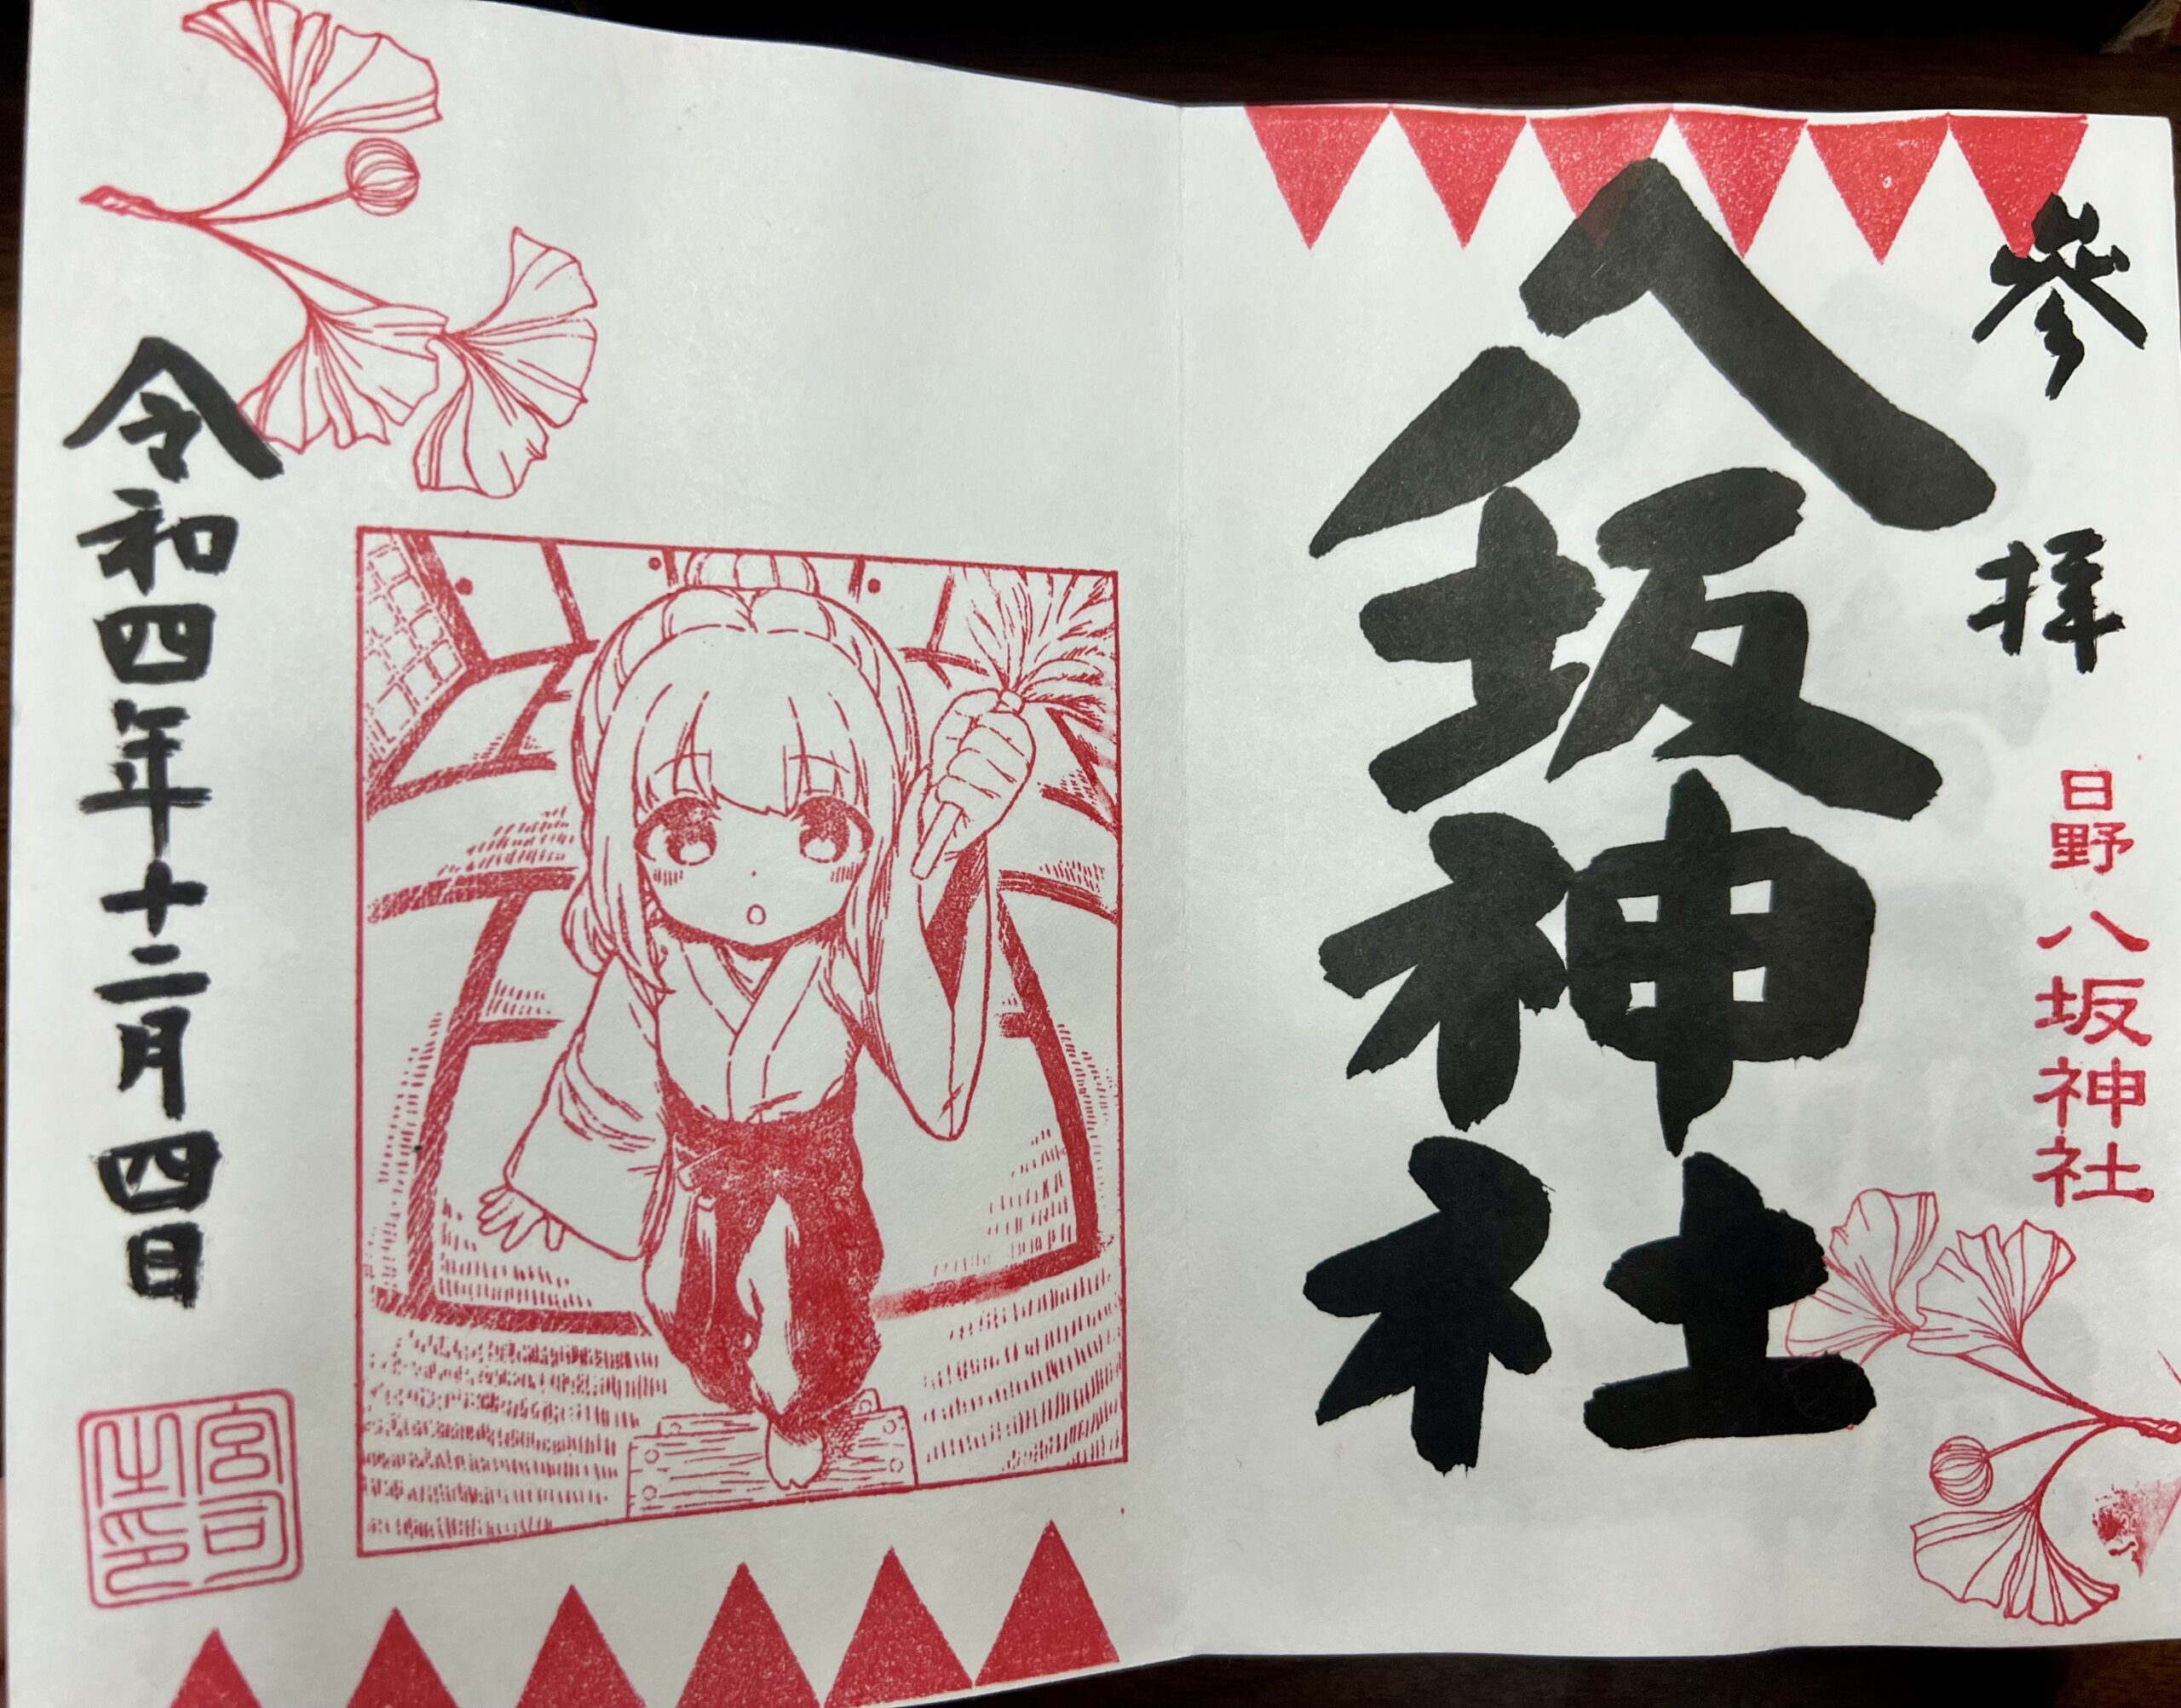 参拝
八坂神社
日野八坂神社
令和四年十二月四日
宮司之印